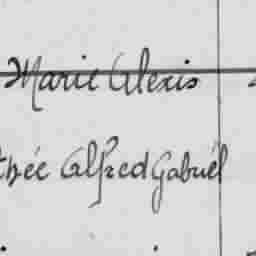 Marie Alexis
thée Alfred Gabriel